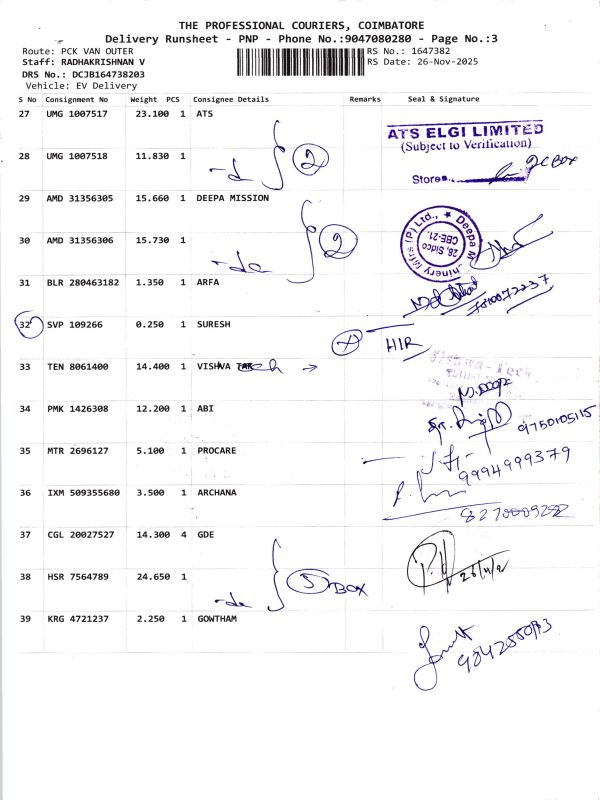 THE PROFESSIONAL COURIERS, COIMBATORE
Delivery Runsheet - PNP - Phone No.:9047080280 - Page No.:3
Route: PCK VAN OUTER RS No.: 1647382
Staff: RADHAKRISHNAN V RS Date: 26-Nov-2025
DRS No.: DCJB164738203
Vehicle: EV Delivery
S No Consignment No Weight PCS Consignee Details Remarks Seal & Signature
27 UMG 1007517 23.100 1 ATS
ATS ELGI LIMITED
(Subject to Verification)
28 UMG 1007518 11.830 1
-do 2
Stores. 2C BOX
29 AMD 31356305 15.660 1 DEEPA MISSION
30 AMD 31356306 15.730 1
-do 2
28, Sidco
CBE-21.
31 BLR 280463182 1.350 1 ARFA
32 SVP 109266 0.250 1 SURESH
HIR
33 TEN 8061400 14.400 1 VISHVA Tech
Vishwa-Tech
34 PMK 1426308 12.200 1 ABI
9750105115
35 MTR 2696127 5.100 1 PROCARE
9994999379
36 IXM 509355680 3.500 1 ARCHANA
37 CGL 20027527 14.300 4 GDE
38 HSR 7564789 24.650 1
-do 5 BOX
39 KRG 4721237 2.250 1 GOWTHAM